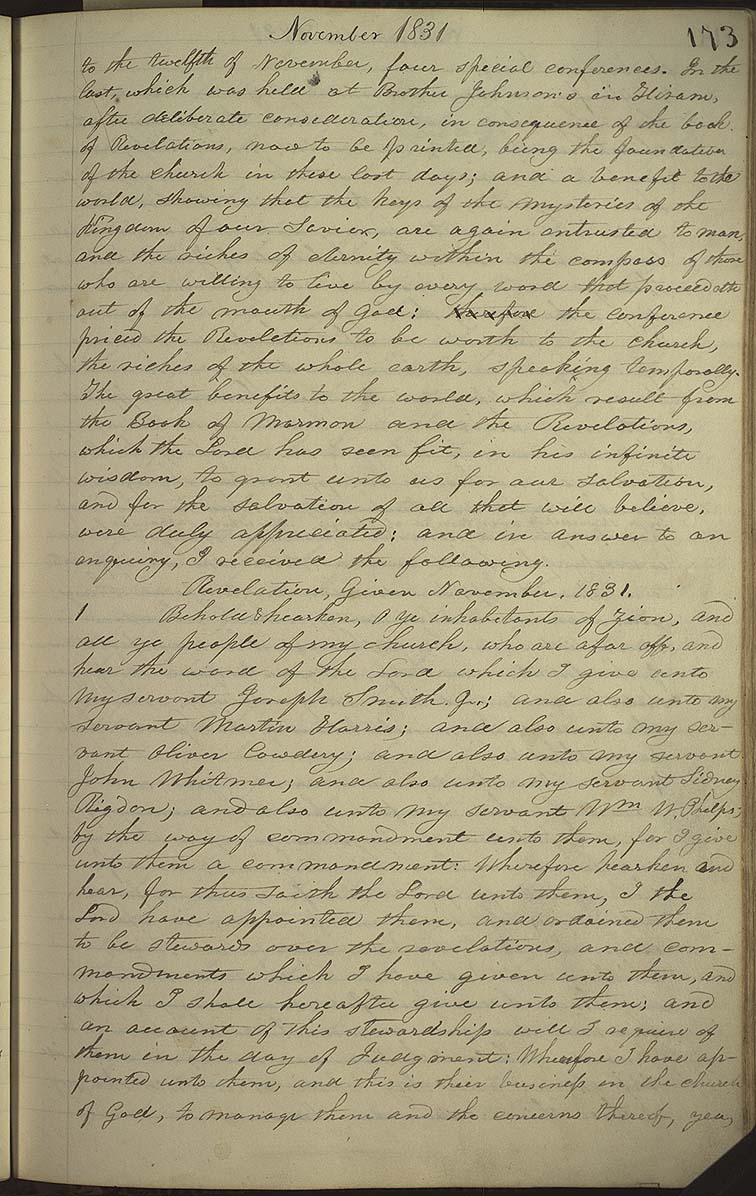 November 1831
173
to the twelfth of November, four special conferences. In the
last, which was held at Brother Johnson's in Hiram,
after deliberate consideration, in consequence of the book
of Revelations, now to be printed, being the foundation
of the church in these last days; and a benefit to the
world, showing that the keys of the mysteries of the
Kingdom of our Savior, are again entrusted to man,
and the riches of eternity within the compass of those
who are willing to live by every word that proceedeth
out of the mouth of God; therefore the conference
prized the Revelations to be worth to the church,
the riches of the whole earth, speaking temporally.
The great benefits to the world, which result from
the Book of Mormon and the Revelations,
which the Lord has seen fit, in his infinite
wisdom, to grant unto us for our salvation,
and for the salvation of all that will believe,
were duly appreciated; and in answer to an
enquiry, I received the following.
Revelation, Given November, 1831.
1 Behold & hearken, O ye inhabitants of Zion, and
all ye people of my church, who are afar off, and
hear the word of the Lord which I give unto
my servant Joseph Smith Jr.; and also unto my
servant Martin Harris; and also unto my ser-
vant Oliver Cowdery; and also unto my servant
John Whitmer; and also unto my servant Sidney
Rigdon; and also unto my servant Wm W. Phelps;
by the way of commandment unto them, for I give
unto them a commandment: Wherefore hearken and
hear, for thus saith the Lord unto them, I the
Lord have appointed them, and ordained them
to be stewards over the revelations, and com-
mandments which I have given unto them, and
which I shall hereafter give unto them; and
an account of this stewardship will I require of
them in the day of Judgment: Wherefore I have ap-
pointed unto them, and this is their business in the church
of God, to manage them and the concerns thereof, yea,